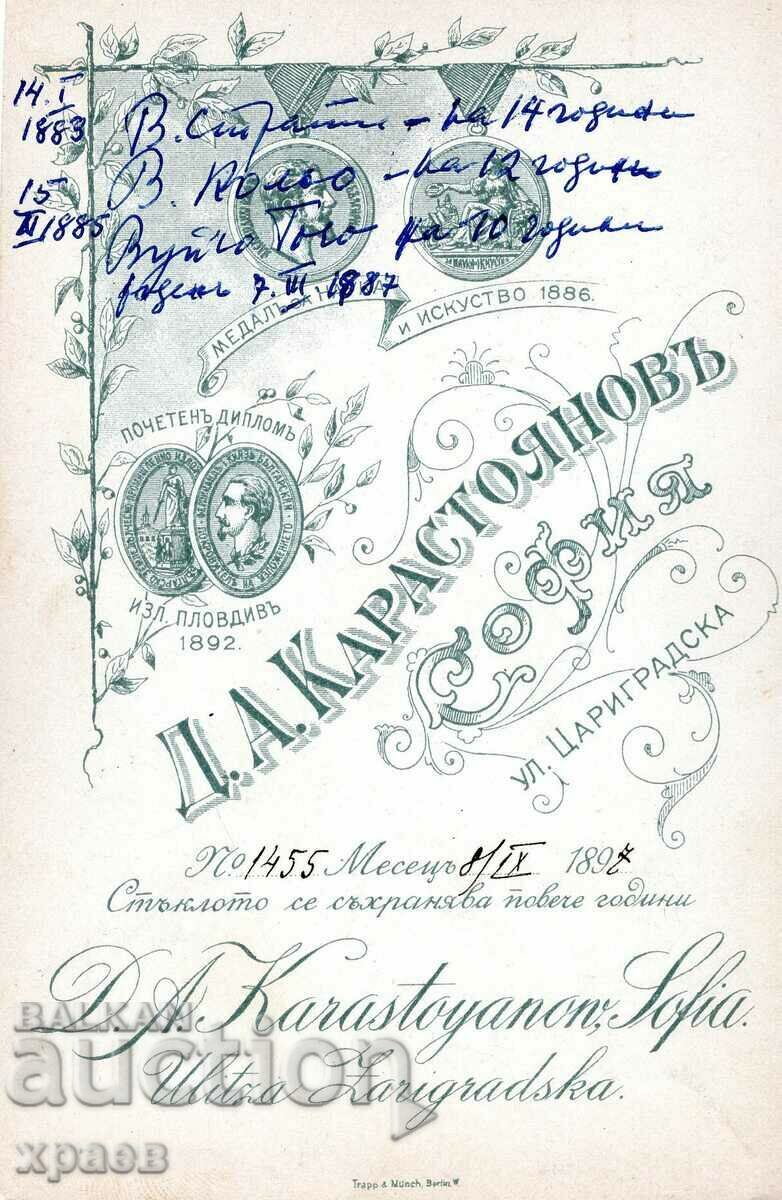 14.I
1883
В. Страти – на 14 години
В. Кольо – на 12 години
15
III 1885
Вуйчо Гого на 10 години
роден 7.III 1887
МЕДАЛЪ ЗА
И ИСКУСТВО 1886.
ПОЧЕТЕНЪ ДИПЛОМЪ
ИЗЛ. ПЛОВДИВЪ
1892.
Д. А. КАРАСТОЯНОВЪ
София
УЛ. ЦАРИГРАДСКА
№ 1455 Месецъ 8/IX 1897
Стъклото се съхранява повече години
D. A. Karastoyanow, Sofia.
Ulitza Zarigradska.
BALKAN
auction
храев
Trapp & Münch, Berlin W